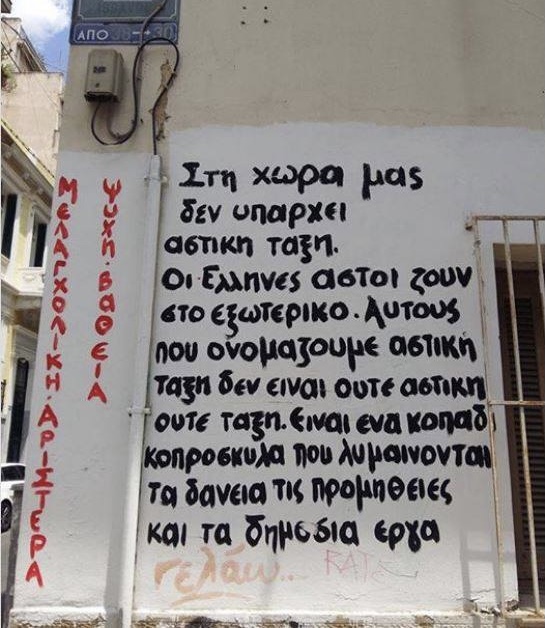 ΑΠΟ 38→30
Στη χωρα μας
δεν υπαρχει
αστικη ταξη.
Οι Ελληνες αστοι ζουν
στο εξωτερικο. Αυτους
που ονομαζουμε αστικη
ταξη δεν ειναι ουτε αστικη
ουτε ταξη. Ειναι ενα κοπαδι
κοπροσκυλα που λυμαινονται
τα δανεια τις προμηθειες
και τα δημοσια εργα
γελάω...
ΨΥΧΗ·ΒΑΘΕΙΑ
ΜΕΛΑΓΧΟΛΙΚΗ·ΑΡΙΣΤΕΡΑ